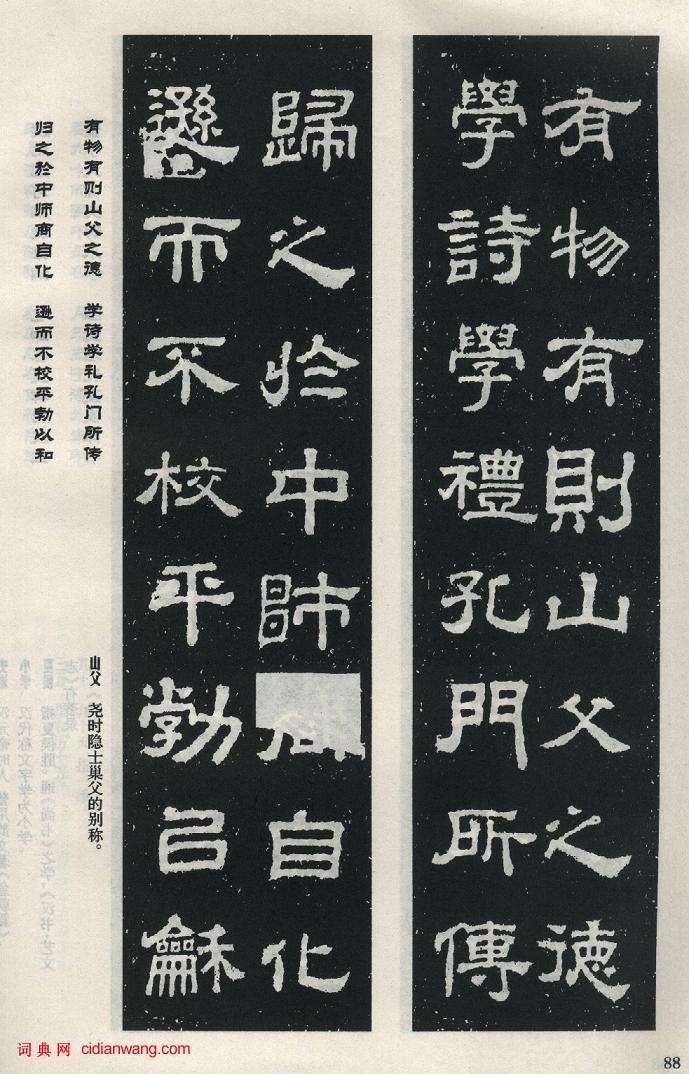 有物有則山父之德
學詩學禮孔門所傳
歸之於中師商自化
遜而不校平勃以龢
有物有则山父之德 学诗学礼孔门所传
归之於中师商自化 逊而不校平勃以和
山父 尧时隐士巢父的别称。
词典网 cidianwang.com
88